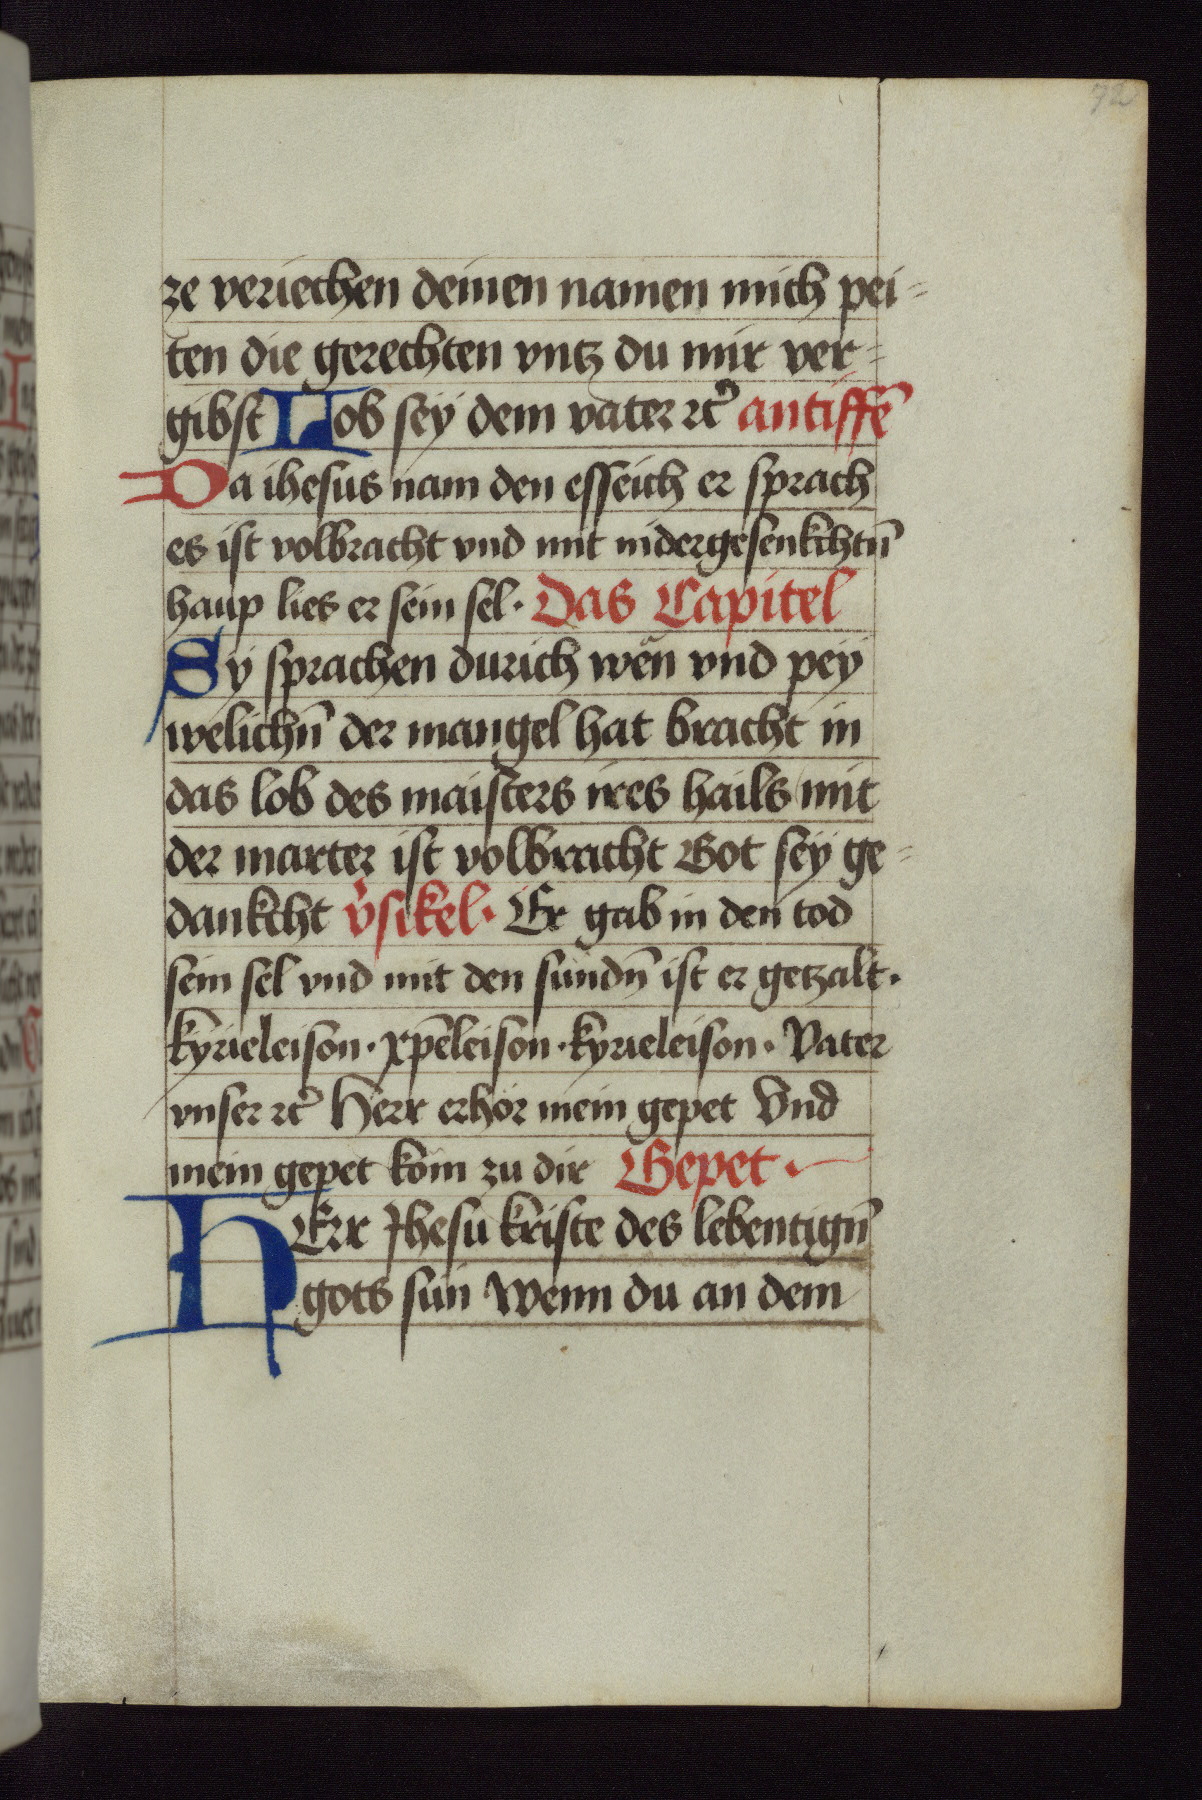 72
ze veriechen deinen namen mich pei=
ten die gerechten vntz du mir ver=
gibst Lob sey dem vater ⁊c̉ antiffē
Da ihesus nam den esseich er sprach
es ist volbracht vnd mit nidergesenkchtn̄
haup lies er sein sel · Das Capitel
Sy sprachen durich wen vnd pey
welichn̄ der mangel hat bracht in
das lob des maisters ires hails mit
der marter ist volbracht Got sey ge=
dankcht v̉sikel · Er gab in den tod
sein sel vnd mit den sundn̄ ist er getzalt ·
kyrieleison · xp̄eleison · kyrieleison · Vater
vnser ⁊c̉ Herr erhör mein gepet Vnd
mein gepet kom zu dir Gepet ·
HErr Jhesu kriste des lebentign̄
gots sun Wenn du an dem